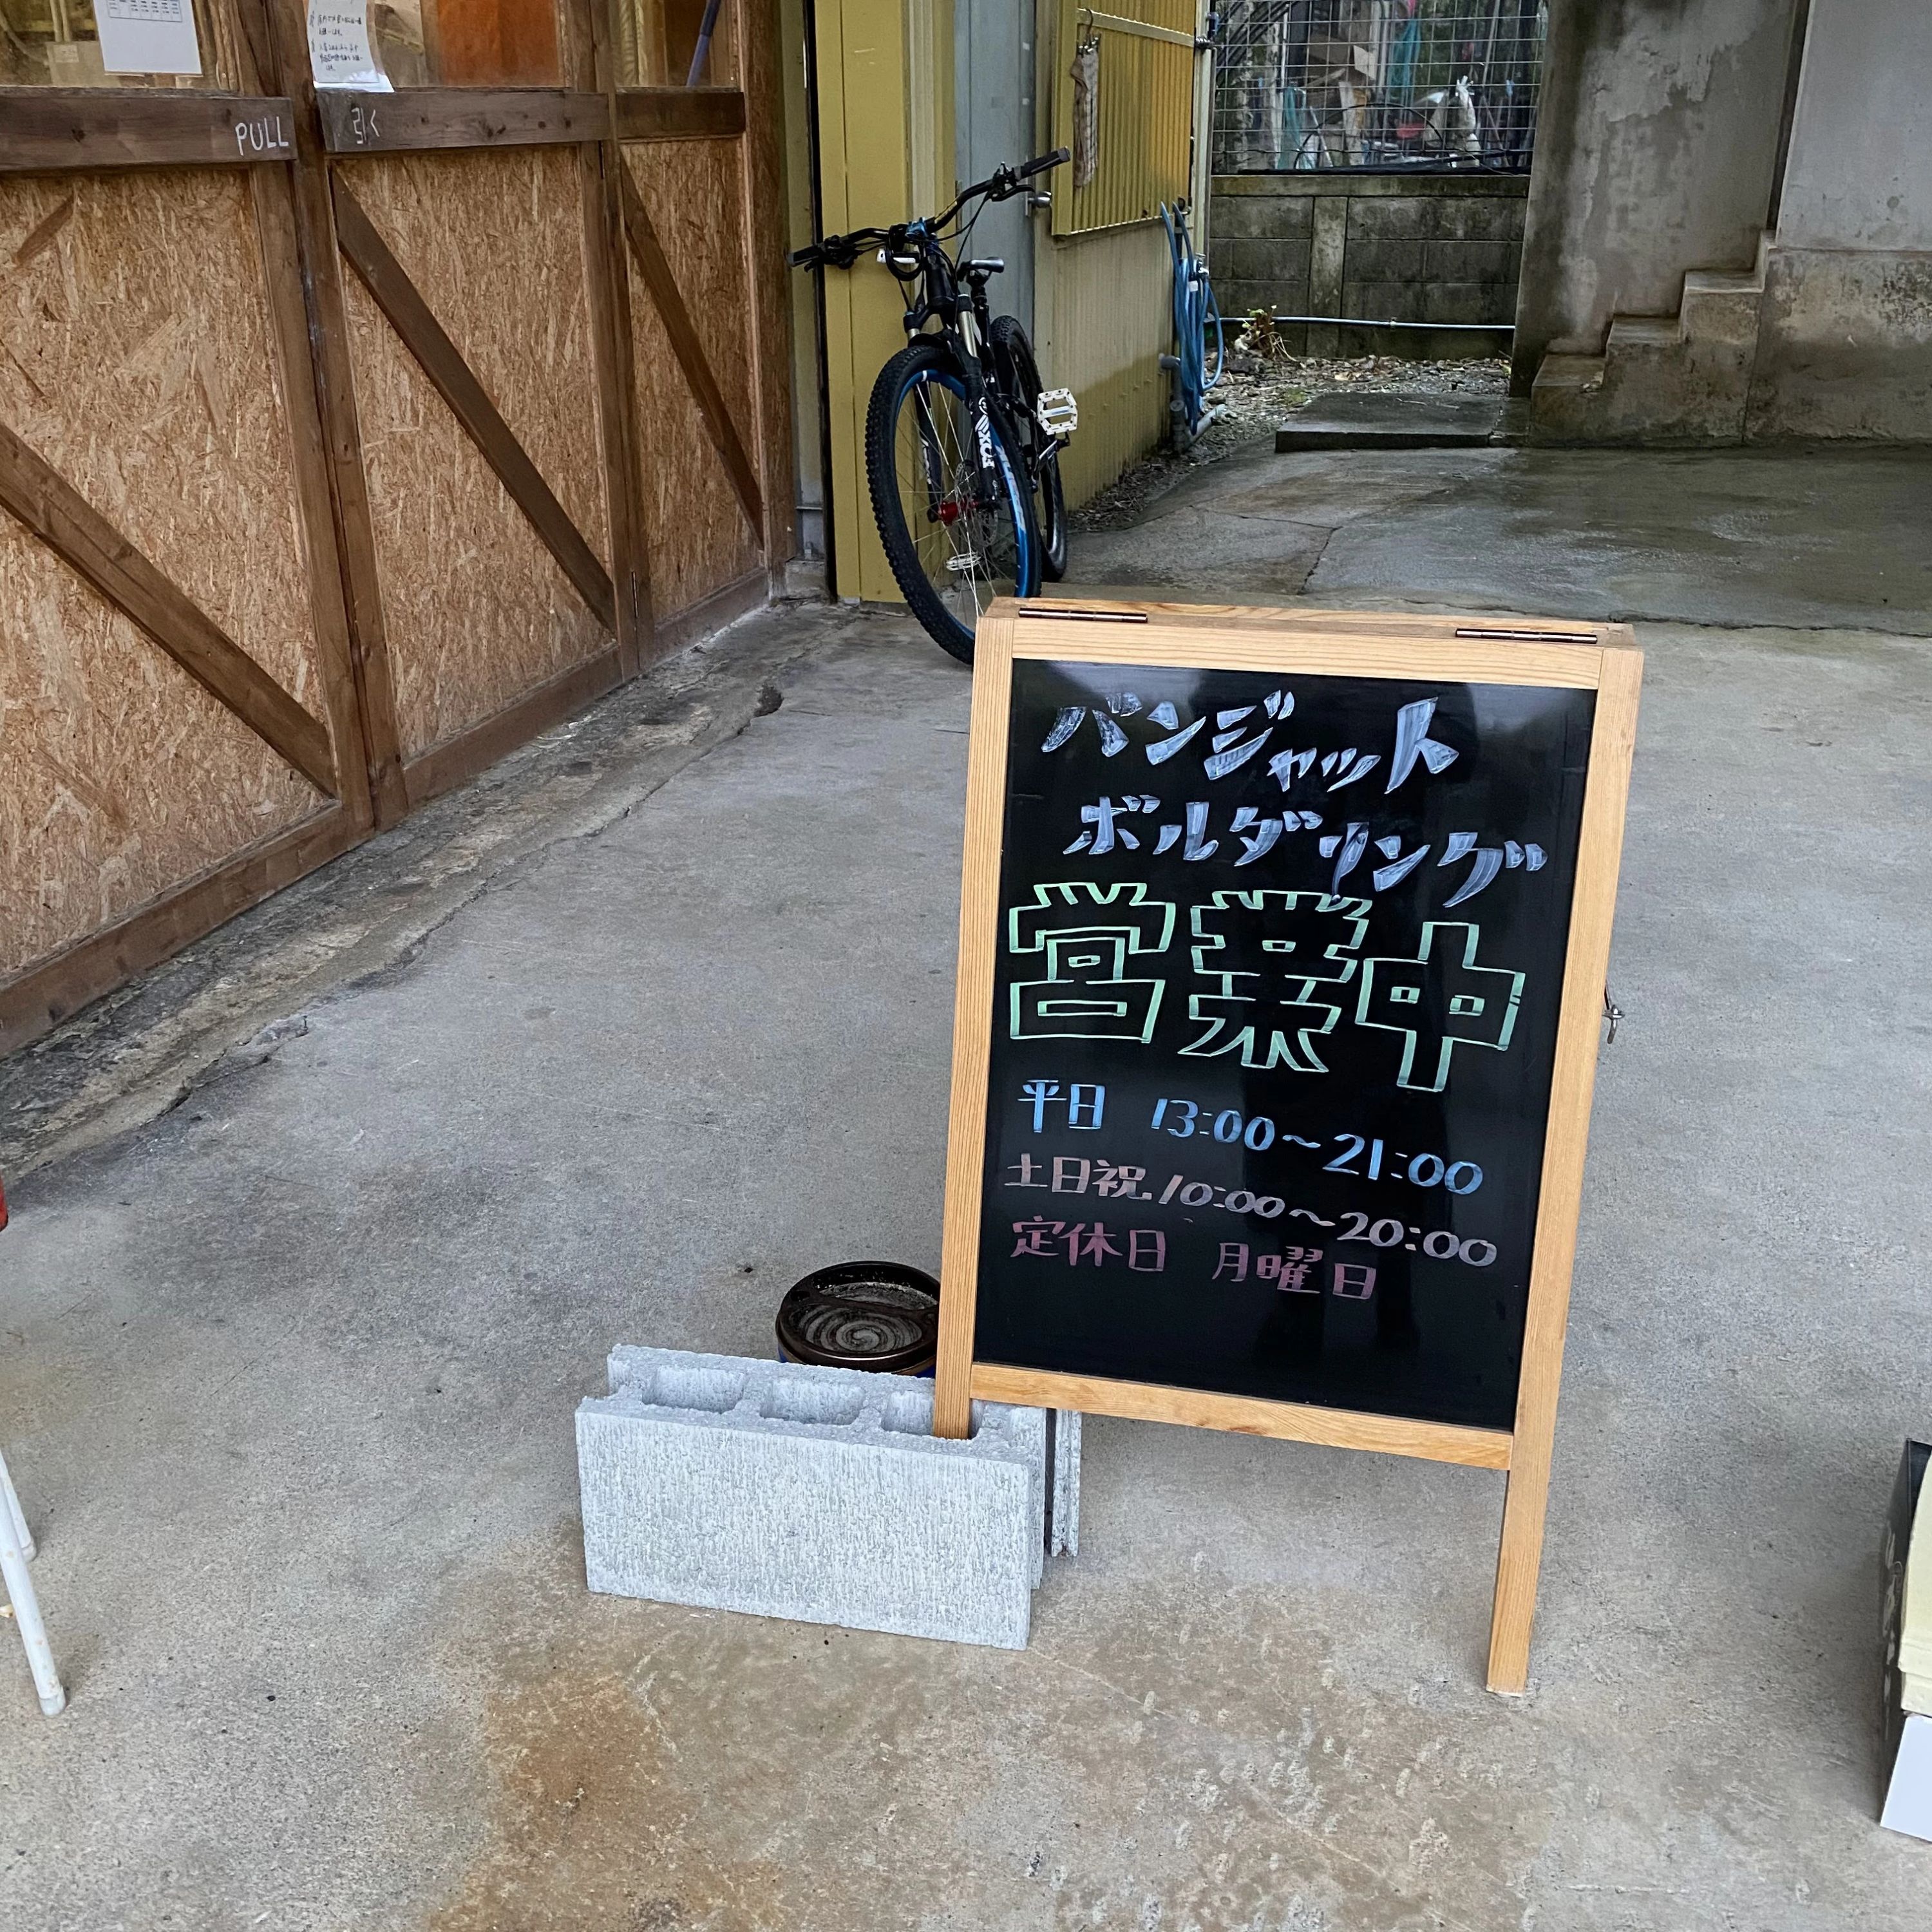 PULL
引く
バンジャット
ボルダリング
営業中
平日 13:00～21:00
土日祝 10:00～20:00
定休日 月曜日